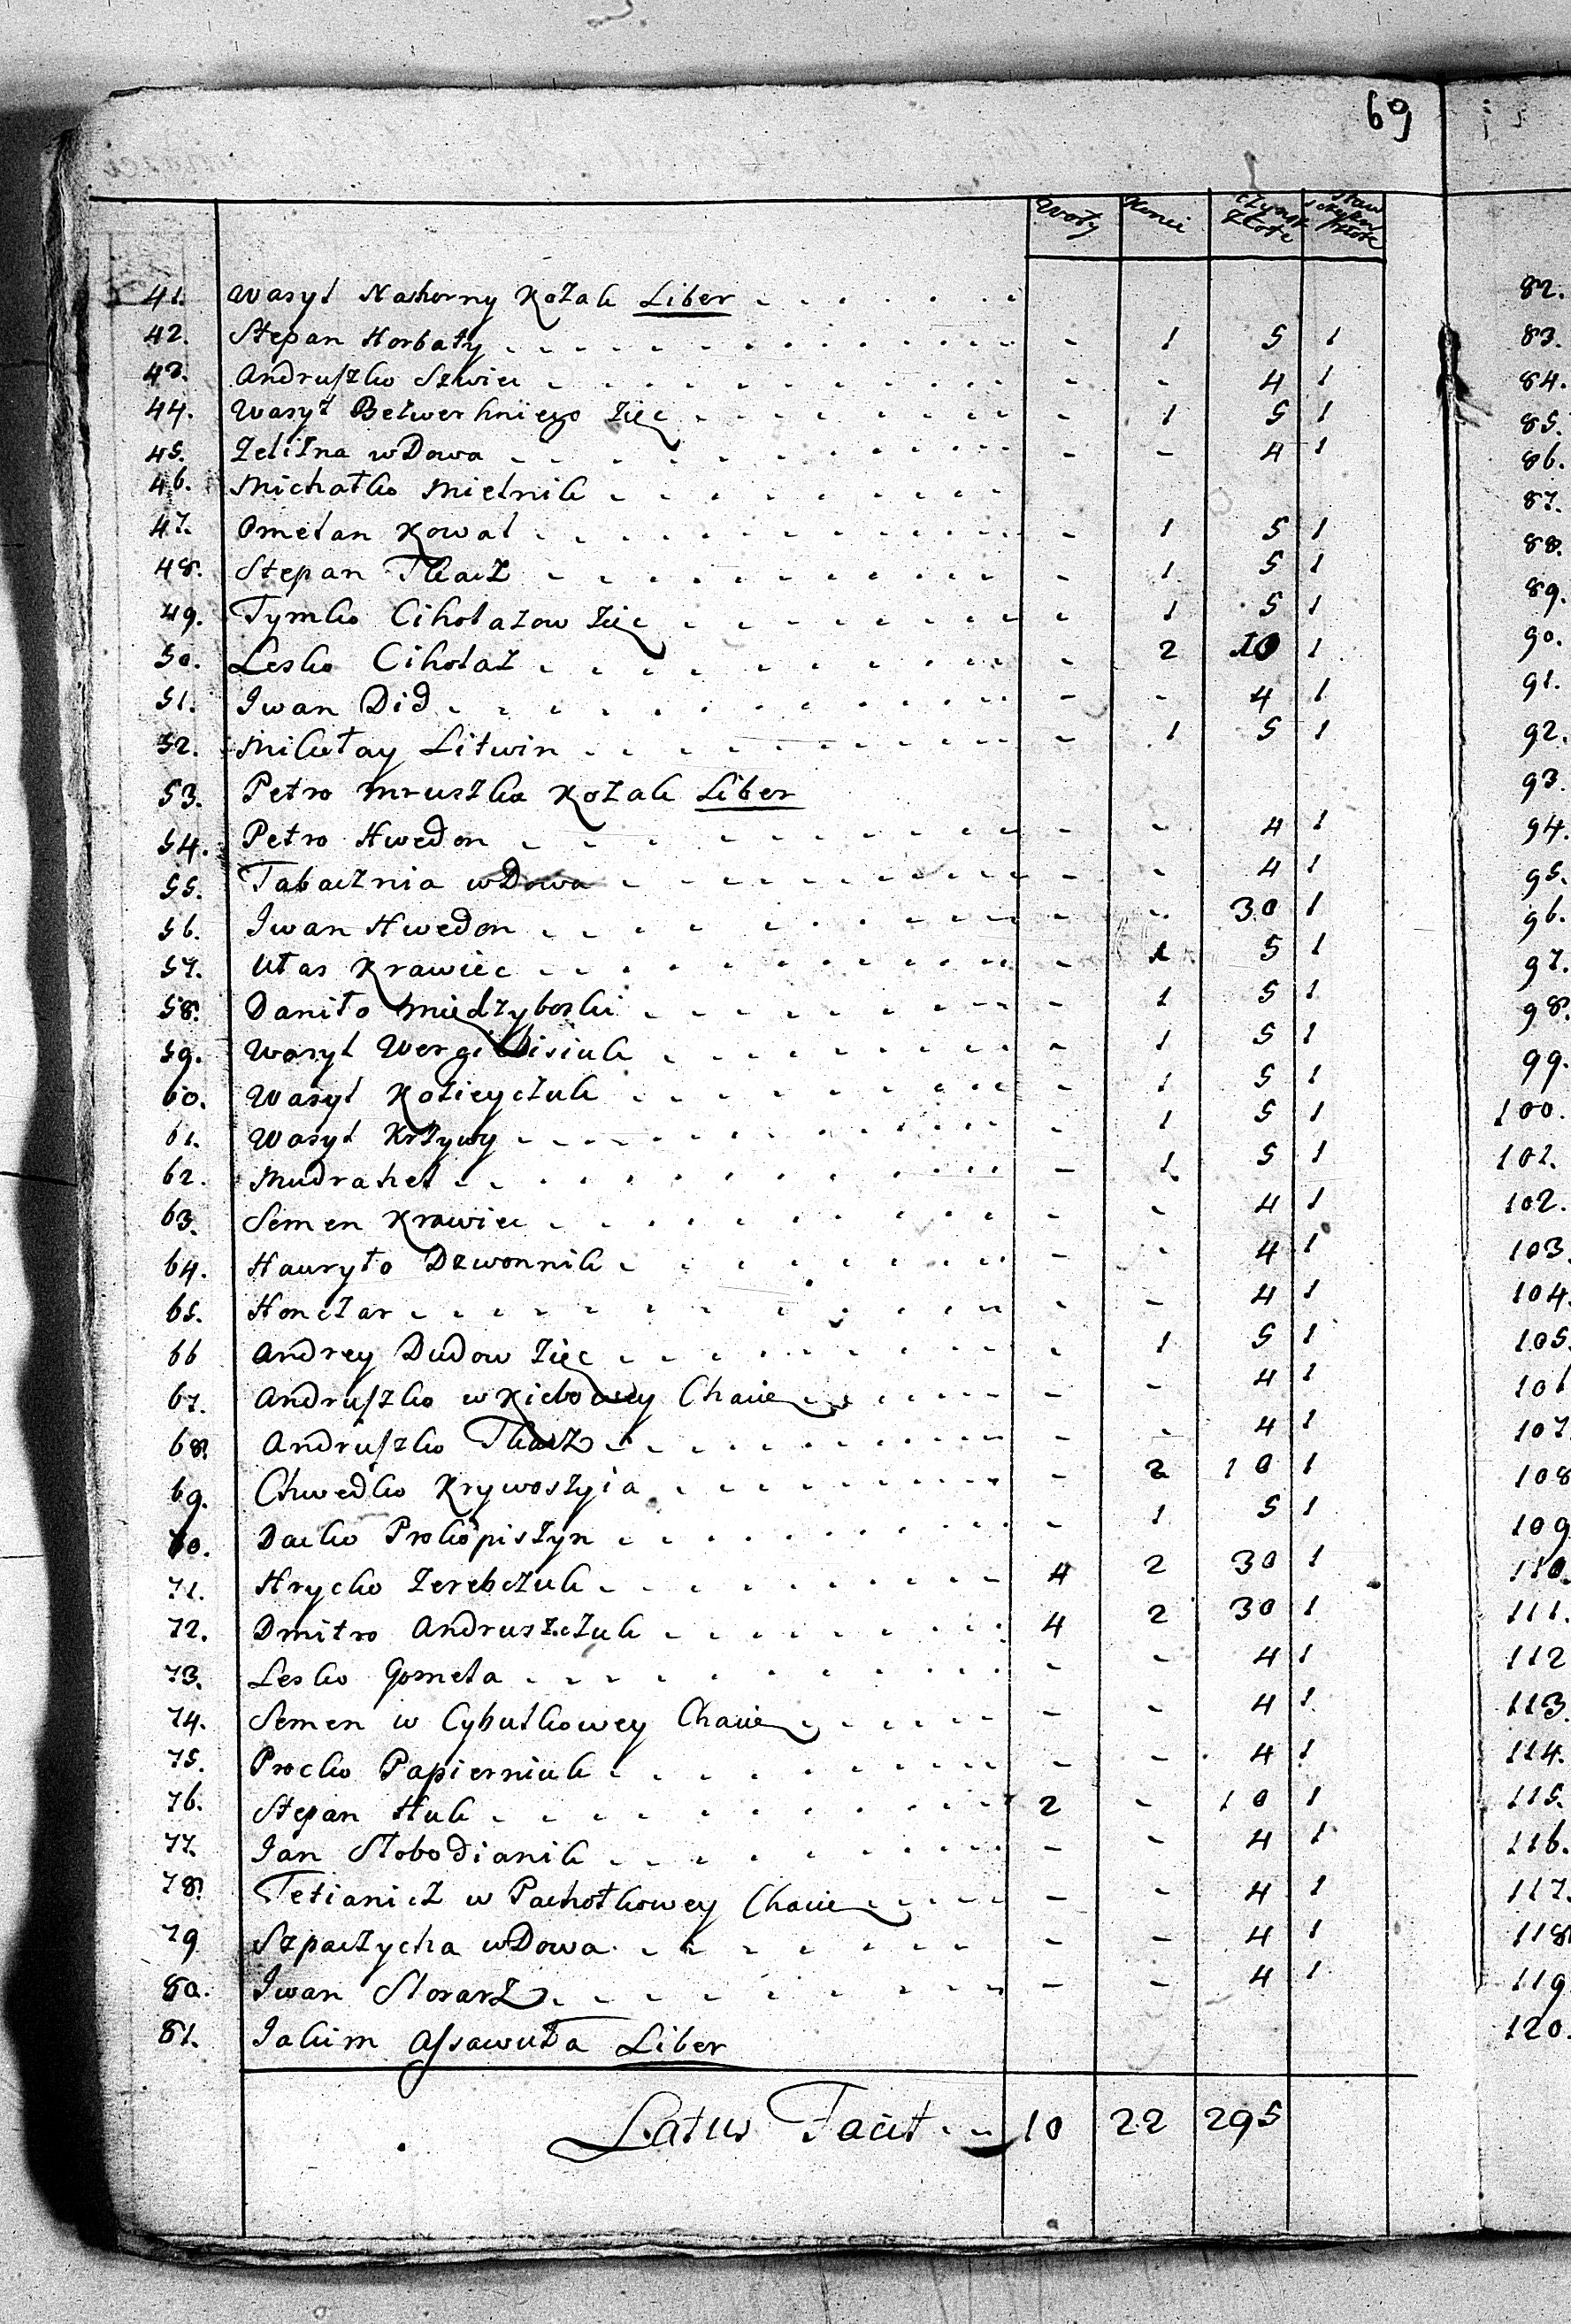 69
Woły Konie Czynsz Złote
41. Wasyl Nahorny Kozak Liber
42. Stepan Horbaty - 1 5 1
43. Andruszko Szwiec - - 4 1
44. Wasyl Bezwerhniego Zięc - 1 5 1
45. Zelizna wdowa - - 4 1
46. Michałko Mielnik
47. Omelan Kowal - 1 5 1
48. Stepan Tkacz - 1 5 1
49. Tymko Ciholazow Zięc - 1 5 1
50. Lesko Ciholaz - 2 10 1
51. Iwan Did - - 4 1
52. Mikołay Litwin - 1 5 1
53. Petro Mruszka Kozak Liber
54. Petro Hwedon - - 4 1
55. Tabacznia wdowa - - 4 1
56. Iwan Hwedon - - 30 1
57. Ułas Krawiec - 1 5 1
58. Daniło Miedzyboski - 1 5 1
59. Wasyl Wergi - 1 5 1
60. Wasyl Kozicyczuk - 1 5 1
61. Wasyl Krzywy - 1 5 1
62. Mudrahel - 1 5 1
63. Semen Krawiec - - 4 1
64. Hauryło Dzwonnik - - 4 1
65. Honczar - - 4 1
66 Andrey Dudow Zięc - 1 5 1
67. Andruszko w Chacie - - 4 1
68. Andruszko Tkacz - - 4 1
69. Chwedko Krywoszyia - 2 10 1
70. Dacko Prokopiszyn - 1 5 1
71. Hrycko Zerebczuk 4 2 30 1
72. Dmitro Andruszczuk 4 2 30 1
73. Lesko Gomela - - 4 1
74. Semen w Cybulkowey Chacie - - 4 1
75. Procko Papierniuk - - 4 1
76. Stepan Huk 2 - 10 1
77. Jan Słobodianik - - 4 1
78. Tetianicz w Pachołkowey Chacie - - 4 1
79 Szpaczycha wdowa - - 4 1
80. Iwan Storarz - - 4 1
81. Jakim Assawuła Liber
Latus Facit 10 22 295
82.
83.
84.
85.
86.
87.
88.
89.
90.
91.
92.
93.
94.
95.
96.
97.
98.
99.
100.
101.
102.
103.
104.
105.
106
107.
108
109
110.
111.
112
113.
114.
115.
116.
117.
118
119
120.